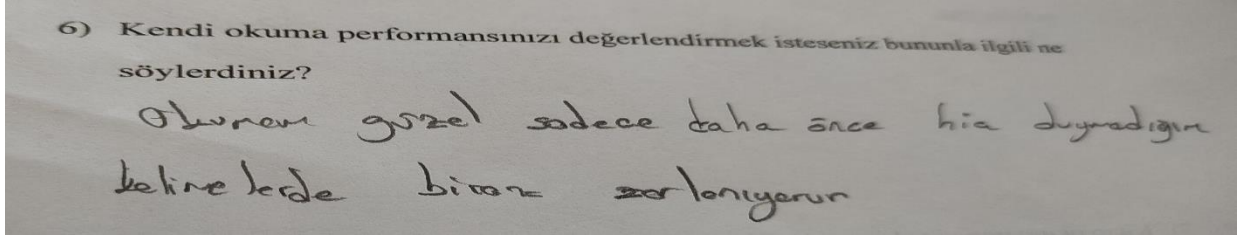 6) Kendi okuma performansınızı değerlendirmek isteseniz bununla ilgili ne
söylerdiniz?
Okumam güzel sadece daha önce hiç duymadığım
kelimelerde biraz zorlanıyorum